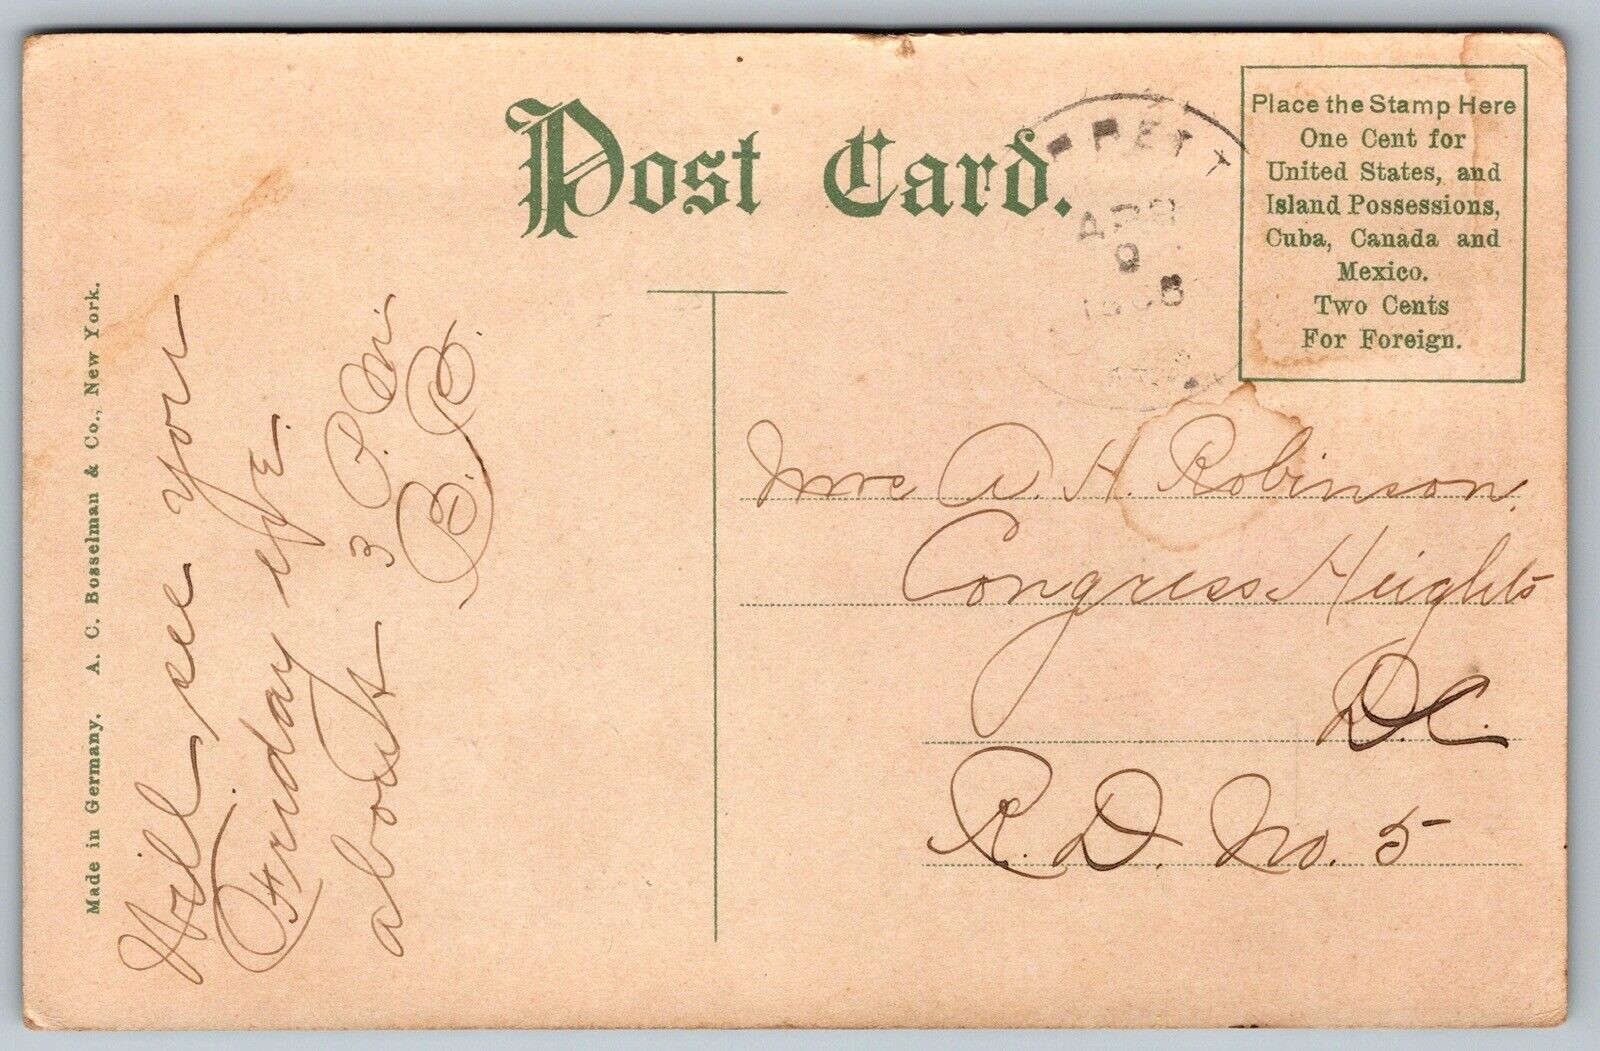 Post Card.
Place the Stamp Here
One Cent for
United States, and
Island Possessions,
Cuba, Canada and
Mexico.
Two Cents
For Foreign.
1908
Made in Germany. A. C. Bosselman & Co., New York.
Will see you
Friday eve.
about 3 P.M.
B. B.
Mrs A. H. Robinson,
Congress Heights
D.C.
R. D. No. 5